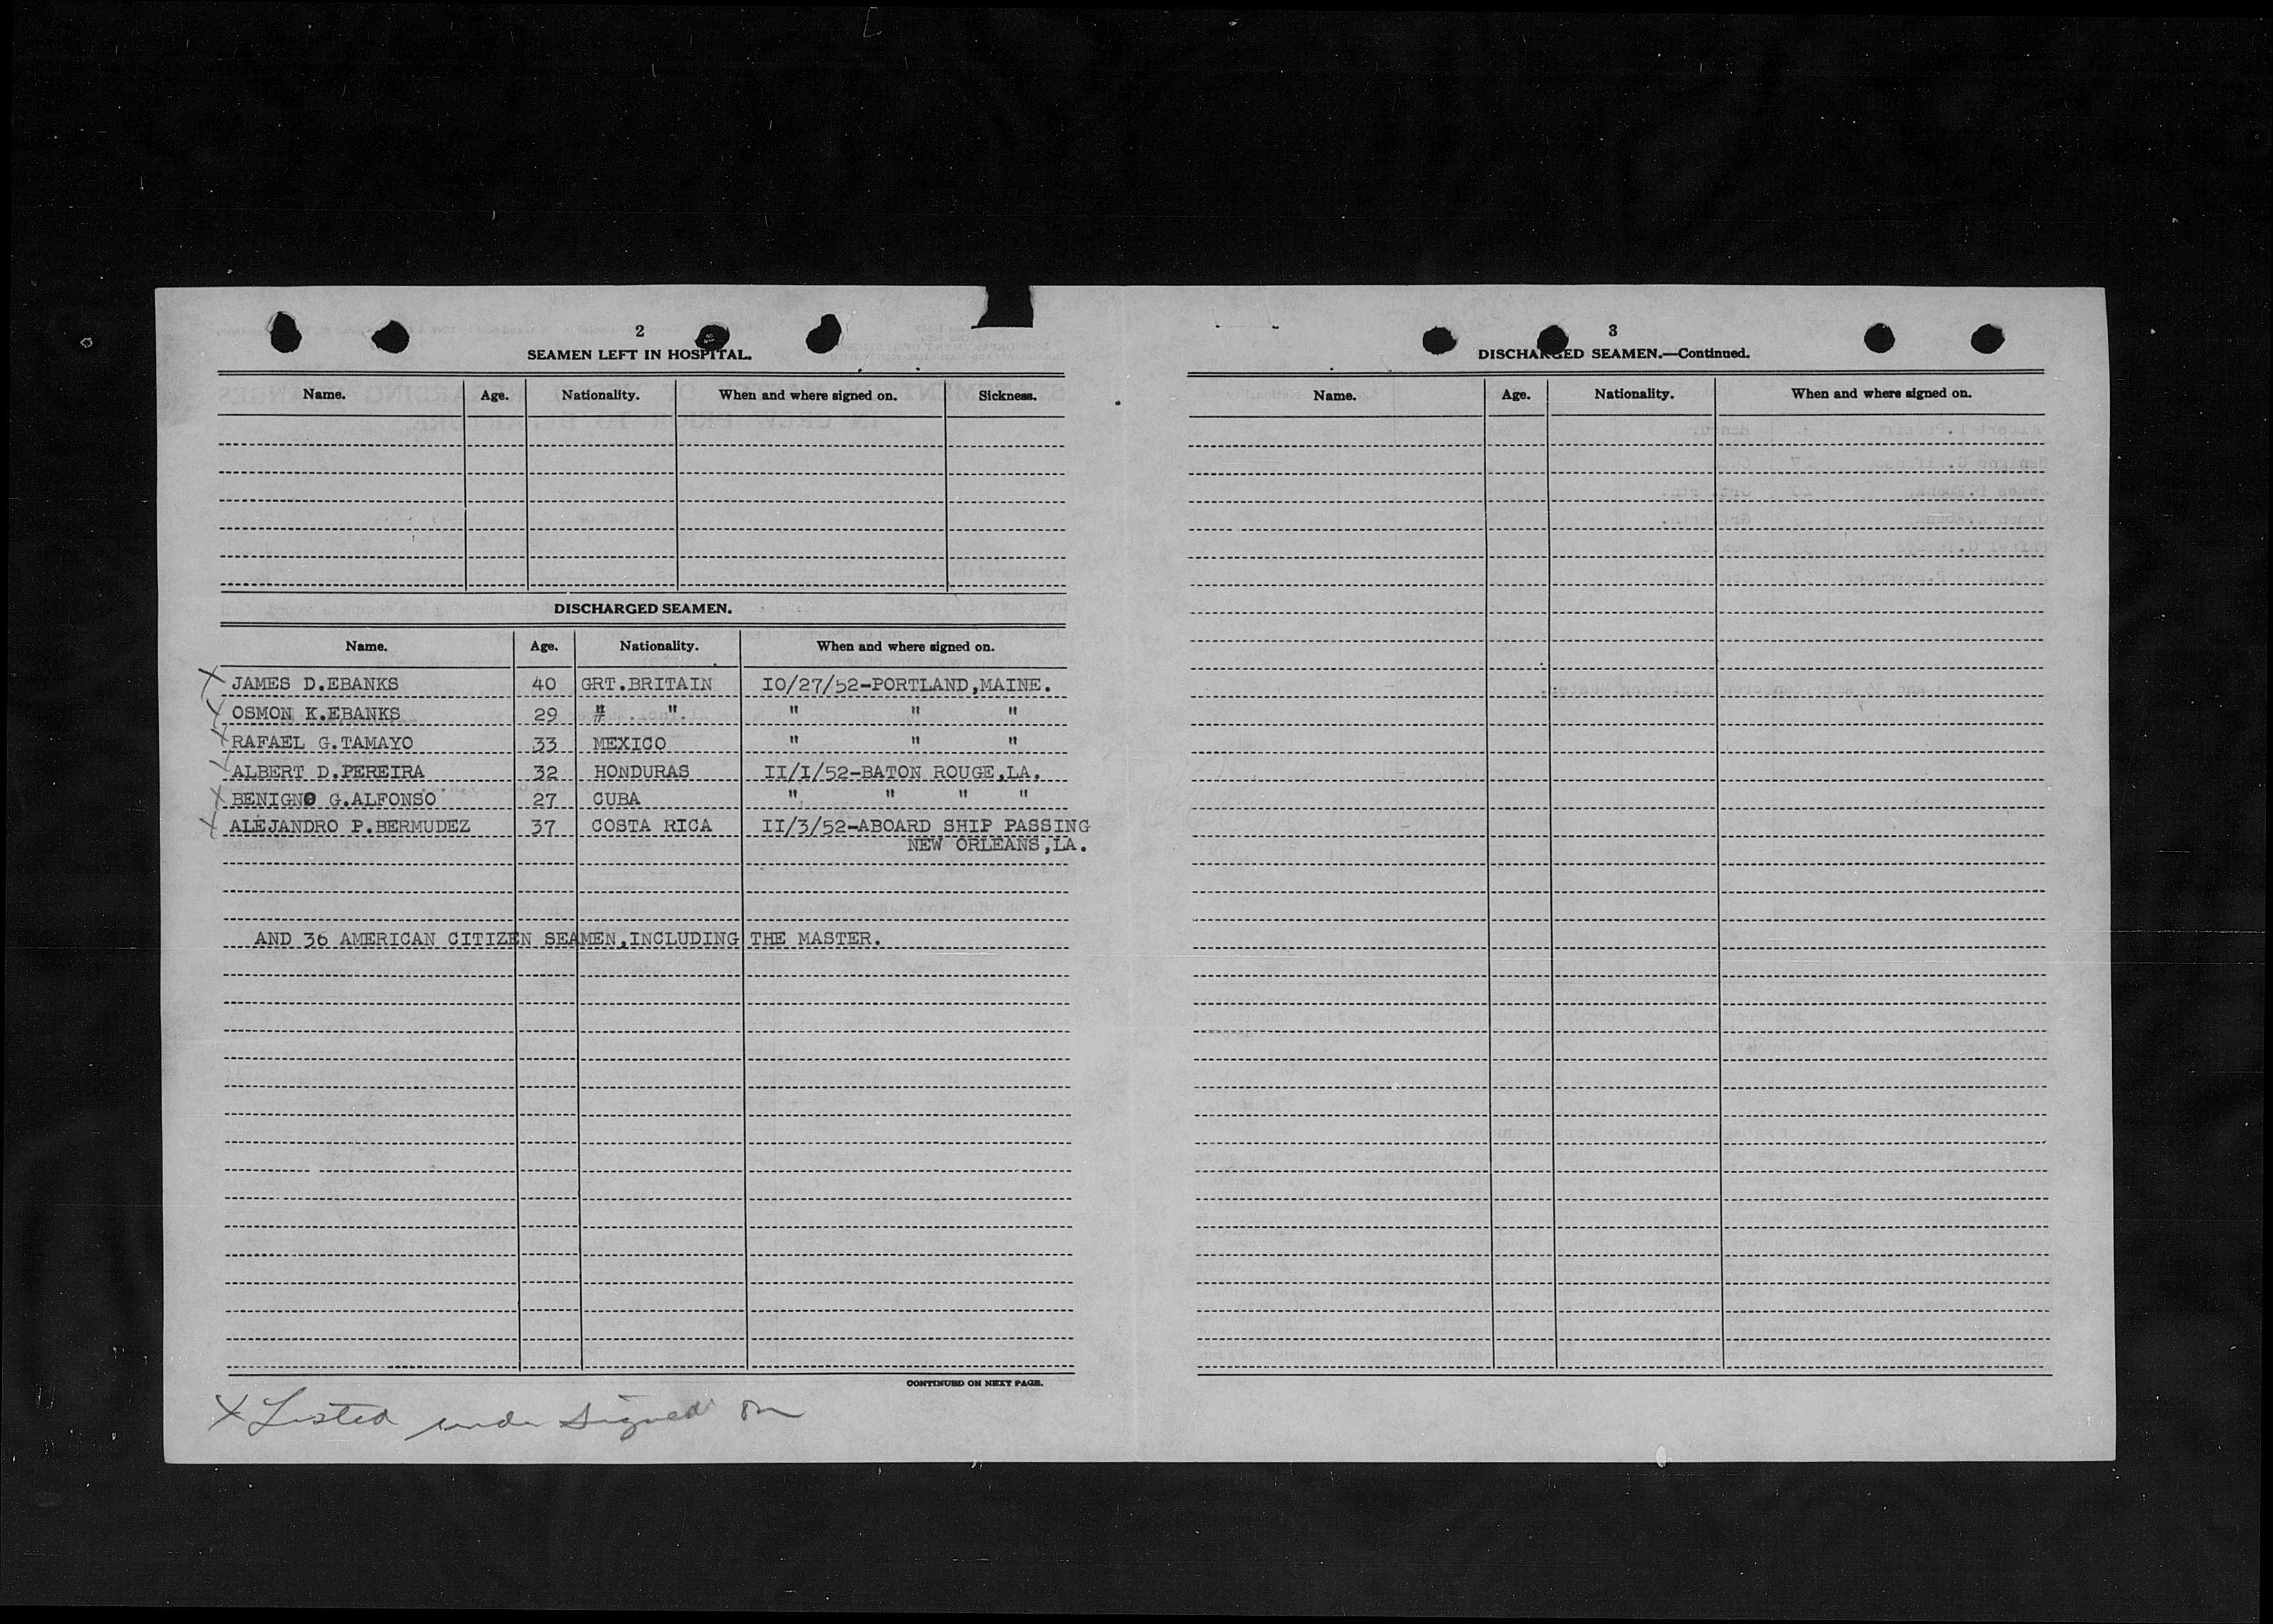 2
SEAMEN LEFT IN HOSPITAL.
Name. Age. Nationality. When and where signed on. Sickness.
DISCHARGED SEAMEN.
Name. Age. Nationality. When and where signed on.
X JAMES D.EBANKS 40 GRT.BRITAIN IO/27/52-PORTLAND,MAINE.
X OSMON K.EBANKS 29 " " " " "
X RAFAEL G.TAMAYO 33 MEXICO " " "
X ALBERT D.PEREIRA 32 HONDURAS II/I/52-BATON ROUGE,LA.
X BENIGNO G.ALFONSO 27 CUBA " " " "
X ALEJANDRO P.BERMUDEZ 37 COSTA RICA II/3/52-ABOARD SHIP PASSING
NEW ORLEANS,LA.
AND 36 AMERICAN CITIZEN SEAMEN,INCLUDING THE MASTER.
CONTINUED ON NEXT PAGE.
X Listed under signed on
3
DISCHARGED SEAMEN.—Continued.
Name. Age. Nationality. When and where signed on.